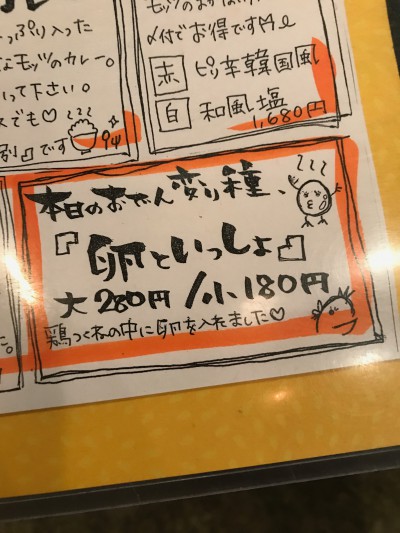 っぷり入った
なモッツのカレー。
って下さい。
スでも♡
です
〆付でお得です
赤 ピリ辛韓国風
白 和風塩
1,680円
本日のおでん変り種、
『卵といっしょ』
大280円/小180円
鶏つくねの中に卵を入れました♡
た。